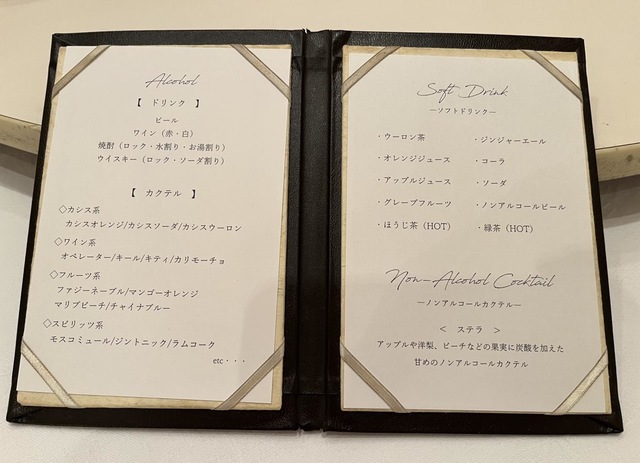 Alcohol
【 ドリンク 】
ビール
ワイン（赤・白）
焼酎（ロック・水割り・お湯割り）
ウイスキー（ロック・ソーダ割り）
【 カクテル 】
◇カシス系
カシスオレンジ/カシスソーダ/カシスウーロン
◇ワイン系
オペレーター/キール/キティ/カリモーチョ
◇フルーツ系
ファジーネーブル/マンゴーオレンジ
マリブピーチ/チャイナブルー
◇スピリッツ系
モスコミュール/ジントニック/ラムコーク
etc・・・
Soft Drink
―ソフトドリンク―
・ウーロン茶 ・ジンジャーエール
・オレンジジュース ・コーラ
・アップルジュース ・ソーダ
・グレープフルーツ ・ノンアルコールビール
・ほうじ茶（HOT） ・緑茶（HOT）
Non-Alcohol Cocktail
―ノンアルコールカクテル―
＜ ステラ ＞
アップルや洋梨、ピーチなどの果実に炭酸を加えた
甘めのノンアルコールカクテル